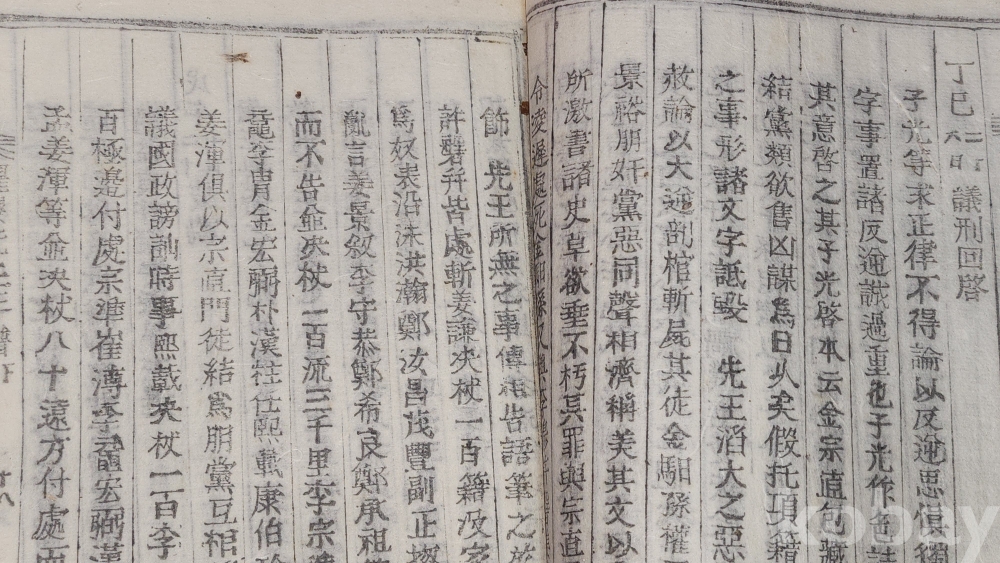 丁巳 議刑回啓
子光等求正律不得論以反逆思愼獨
字事置諸反逆誠過重也子光作色詰
其意啓之其子光啓本云金宗直包藏
結黨類欲售凶謀爲日久矣假托項籍
之事形諸文字詆毀 先王滔大之惡
赦論以大逆剖棺斬屍其徒金馹孫權
景裕朋奸黨惡同聲相濟稱美其文以
所激書諸史草欲垂不朽其罪與宗直
令凌遲處死金馹孫又與
飾 先王所無之事傳相告語筆之於
許磐幷皆處斬姜謙决杖一百籍沒家
爲奴表沿沫洪瀚鄭汝昌茂豐副正摠
亂言姜景敘李守恭鄭希良鄭承祖
而不告並决杖一百流三千里李宗準
龜李胄金宏弼朴漢柱任熙載康伯
姜渾俱以宗直門徒結爲朋黨互相
議國政謗訕時事熙載决杖一百李
百極邊付處宗準崔溥李黿宏弼漢
孟姜渾等並决杖八十遠方付處而